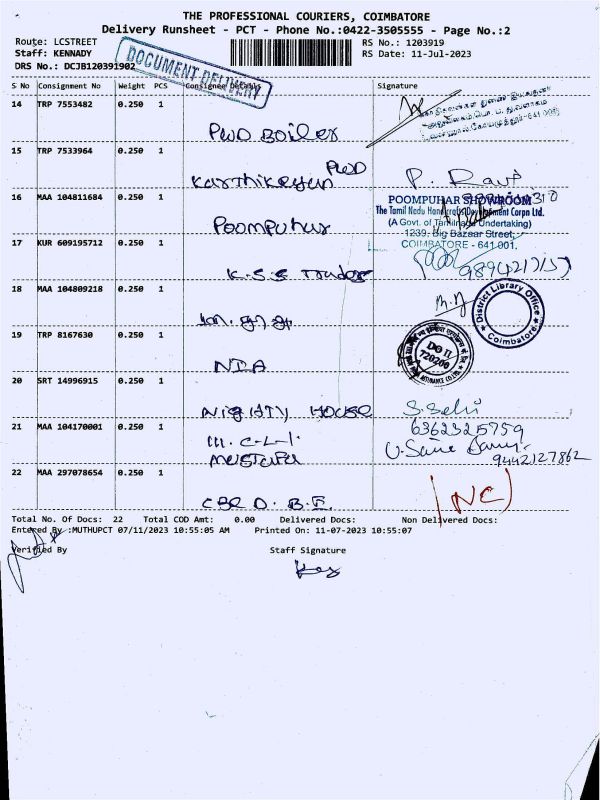 THE PROFESSIONAL COURIERS, COIMBATORE
Delivery Runsheet - PCT - Phone No.:0422-3505555 - Page No.:2
Route: LCSTREET
RS No.: 1203919
Staff: KENNADY
RS Date: 11-Jul-2023
DRS No.: DCJB120391902
DOCUMENT DELIVERY
S No Consignment No Weight PCS Consignee Details Signature
14 TRP 7553482 0.250 1
PWD Boiler
15 TRP 7533964 0.250 1
PWD
Karthikeyan
P. Ravi
16 MAA 104811684 0.250 1
Poompuhur
POOMPUHAR SHOWROOM
The Tamil Nadu Handicrafts Development Corpn Ltd.
(A Govt. of Tamilnadu Undertaking)
1239, Big Bazaar Street,
COIMBATORE - 641 001.
17 KUR 609195712 0.250 1
K.S.S Traders
18 MAA 104809218 0.250 1
District Library Office
Coimbatore
19 TRP 8167630 0.250 1
NIA
DO II
720200
20 SRT 14996915 0.250 1
Nighty House
S. Selvi
21 MAA 104170001 0.250 1
6362325759
M.C.L.I.
Mustafa
9442127862
22 MAA 297078654 0.250 1
CBE D.B.E.
(NC)
Total No. Of Docs: 22 Total COD Amt: 0.00 Delivered Docs: Non Delivered Docs:
Entered By :MUTHUPCT 07/11/2023 10:55:05 AM Printed On: 11-07-2023 10:55:07
Verified By Staff Signature